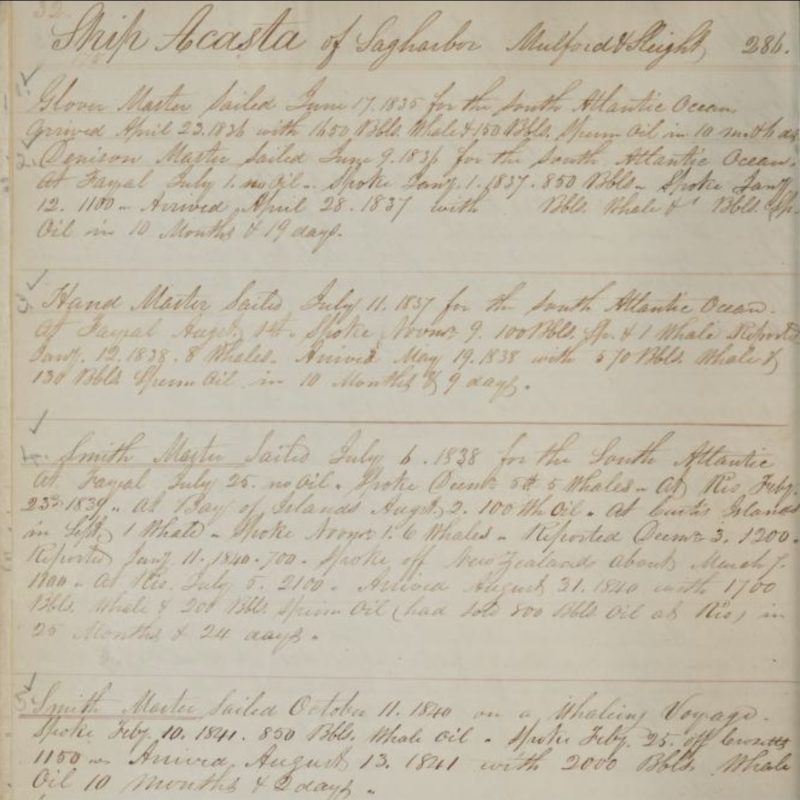 32.
Ship Acasta of Sagharbor Mulford & Sleight 286.
1. Glover Master Sailed June 17. 1835 for the South Atlantic Ocean
arrived April 23. 1836 with 1650 Bbls. Whale & 150 Bbls. Sperm Oil in 10 months
2. Denison Master Sailed June 9. 1836 for the South Atlantic Ocean.
At Fayal July 1. no oil. Spoke Jany. 1. 1837. 850 Bbls. Spoke Jany
12. 1100. Arrived April 28. 1837 with Bbls. Whale & Bbls. Sp.
Oil in 10 Months & 19 days.
3. Hand Master Sailed July 11. 1837 for the South Atlantic Ocean.
At Fayal Augst. 1st. Spoke Novmr. 9. 100 Bbls. Sp. & 1 Whale Reported
Jany. 12. 1838. 8 Whales. Arrived May 19. 1838 with 570 Bbls. Whale &
130 Bbls Sperm Oil in 10 Months & 9 days.
4. Smith Master Sailed July 6. 1838 for the South Atlantic
At Fayal July 25. no oil. Spoke Decmr. 5th 5 Whales. At Rio, Feby.
23d. 1839. At Bay of Islands Augst. 2. 100 Wh Oil. At Curtis Islands
in Sept. 1 Whale. Spoke Novmr. 1. 6 Whales. Reported Decmr. 3. 1200.
Reported Jany. 11. 1840. 700. Spoke off New Zealands about March 7.
1800. At Rio. July 5. 2100. Arrived August 31. 1840 with 1700
Bbls. Whale & 200 Bbls Sperm Oil (had sold 800 Bbls Oil at Rio) in
25 Months & 24 days.
5. Smith Master Sailed October 11. 1840 on a Whaling Voyage.
Spoke Feby. 10. 1841. 850 Bbls. Whale Oil. Spoke Feby. 25. off
1150. Arrived August 13. 1841 with 2000 Bbls. Whale
Oil 10 months & 2 days.